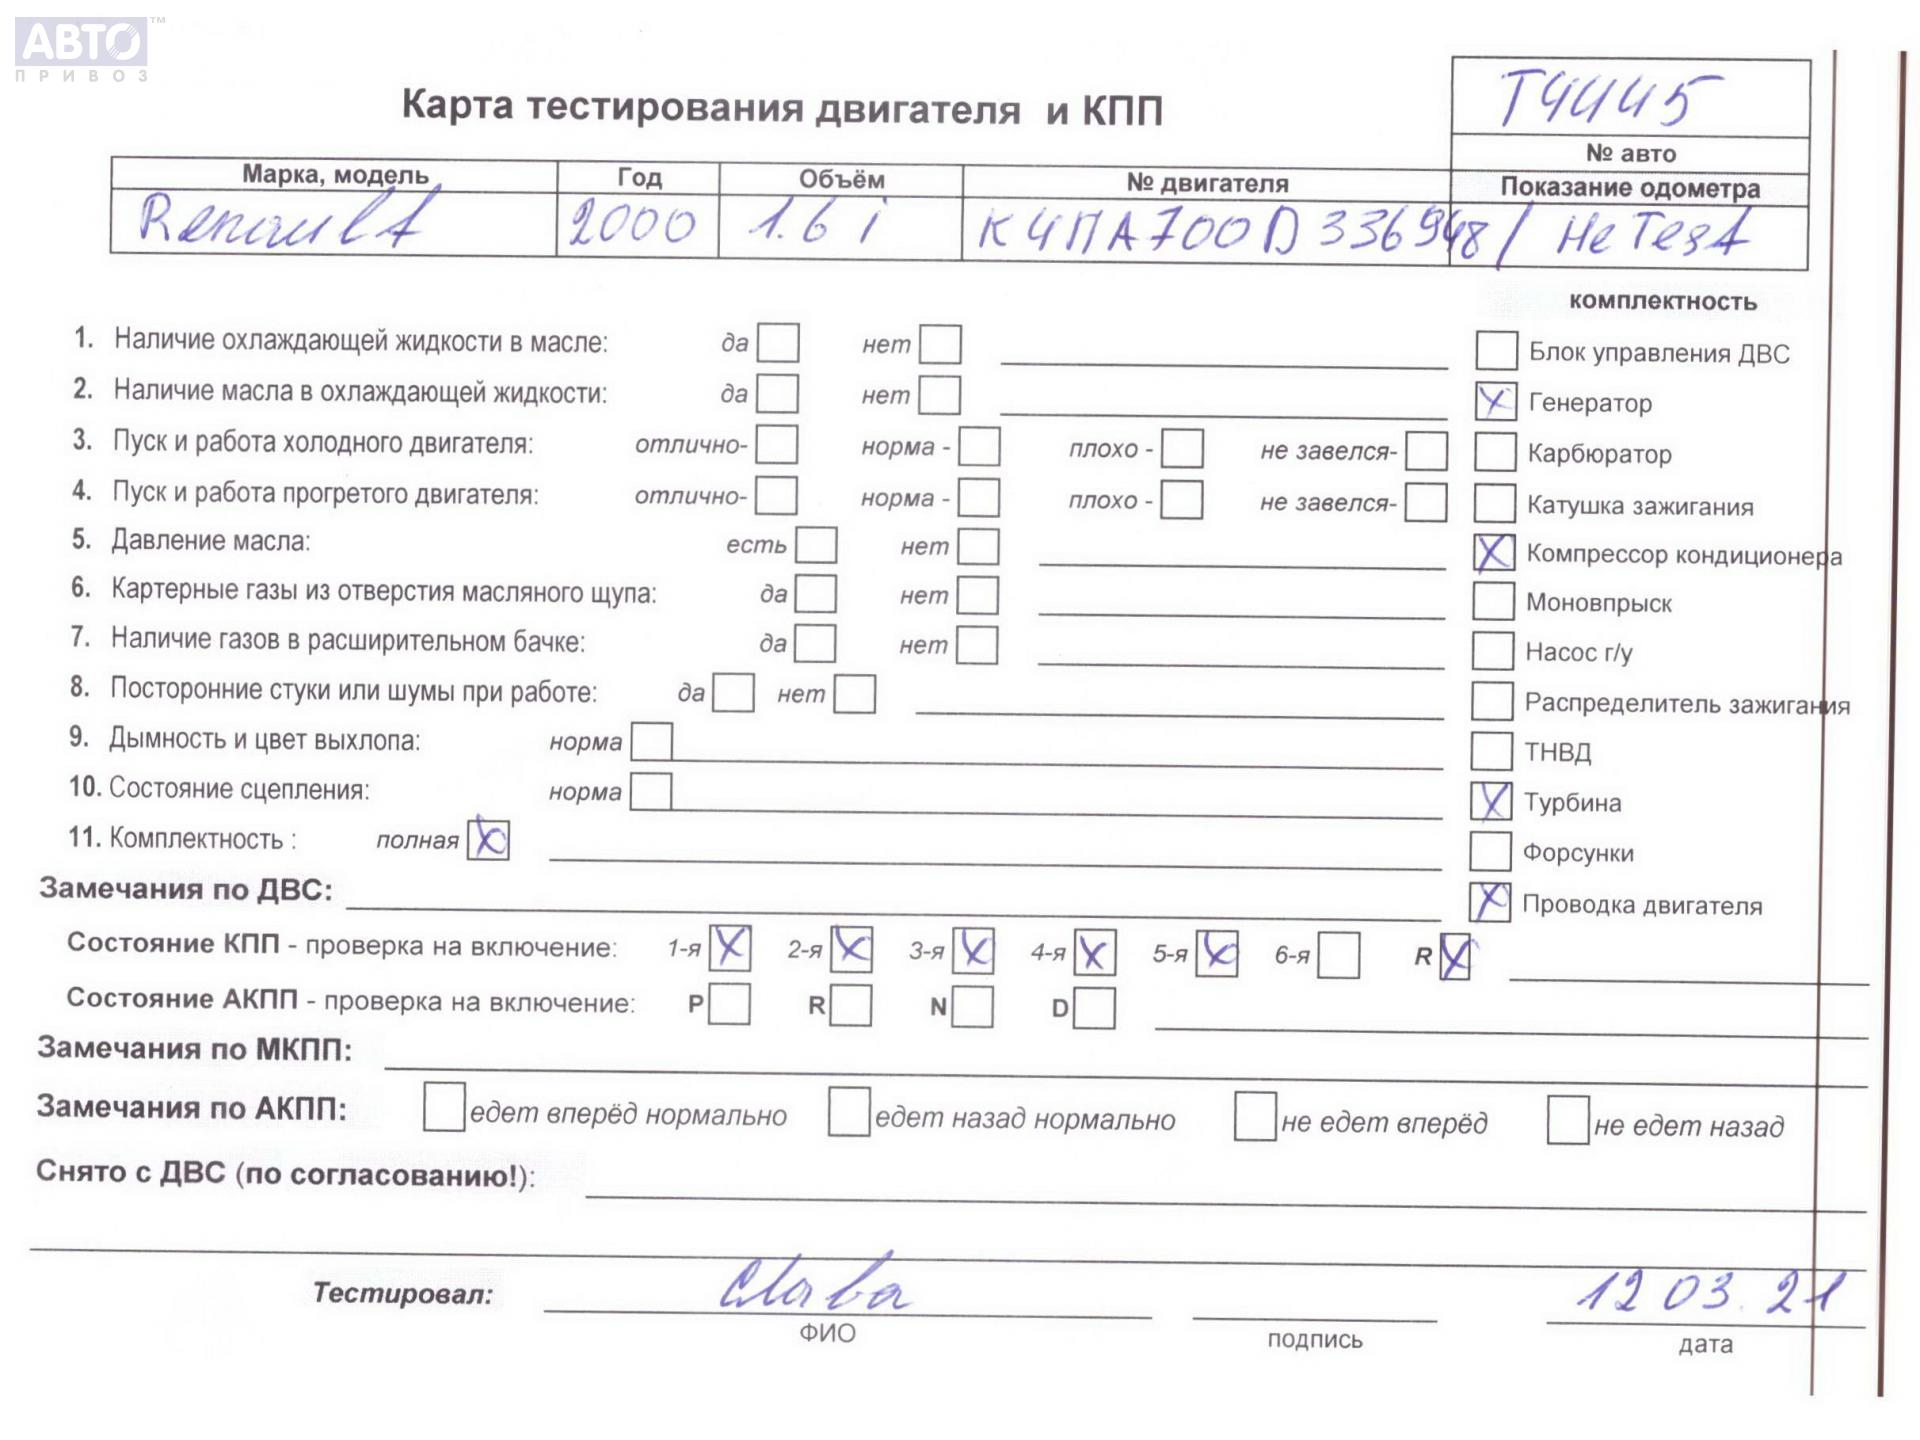 АВТО™
ПРИВОЗ
Карта тестирования двигателя и КПП
Т4445
№ авто
Марка, модель Год Объём № двигателя Показание одометра
Renault 2000 1.6 i К4ПА700D336948 / Не Тест
комплектность
1. Наличие охлаждающей жидкости в масле: да нет
Блок управления ДВС
2. Наличие масла в охлаждающей жидкости: да нет
Генератор
3. Пуск и работа холодного двигателя: отлично- норма - плохо - не завелся-
Карбюратор
4. Пуск и работа прогретого двигателя: отлично- норма - плохо - не завелся-
Катушка зажигания
5. Давление масла: есть нет
Компрессор кондиционера
6. Картерные газы из отверстия масляного щупа: да нет
Моновпрыск
7. Наличие газов в расширительном бачке: да нет
Насос г/у
8. Посторонние стуки или шумы при работе: да нет
Распределитель зажигания
9. Дымность и цвет выхлопа: норма
ТНВД
10. Состояние сцепления: норма
Турбина
11. Комплектность : полная
Форсунки
Замечания по ДВС:
Проводка двигателя
Состояние КПП - проверка на включение: 1-я 2-я 3-я 4-я 5-я 6-я R
Состояние АКПП - проверка на включение: P R N D
Замечания по МКПП:
Замечания по АКПП: едет вперёд нормально едет назад нормально не едет вперёд не едет назад
Снято с ДВС (по согласованию!):
Тестировал: Слава 12 03. 21
ФИО подпись дата